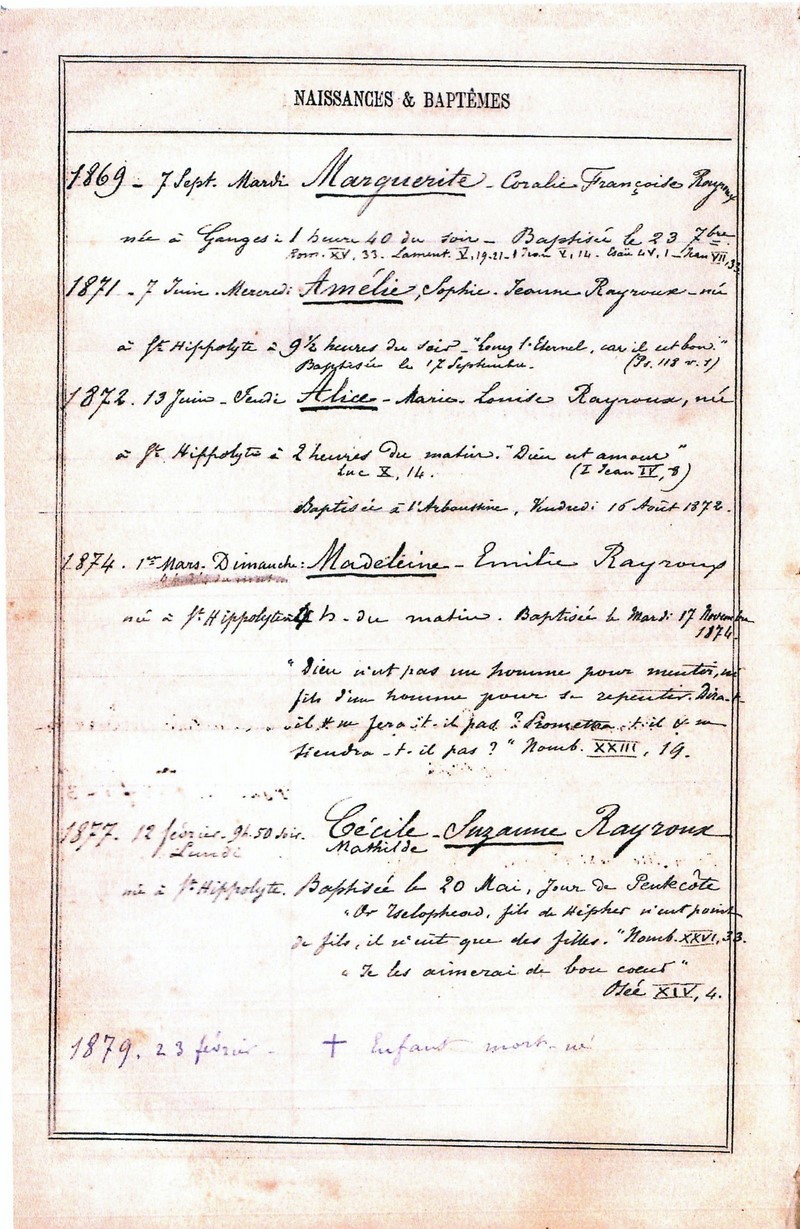 NAISSANCES & BAPTÊMES
1869 - 7 Sept. Mardi Marguerite - Coralie Françoise Rayroux
née à Ganges à 1 heure 40 du soir - Baptisée le 23 7bre
Rom. XV, 33. Lament. V, 19-21 - I Jean V, 14. Esaïe LV, 1 - Jean VII, 33
1871 - 7 Juin - Mercredi Amélie, Sophie - Jeanne Rayroux - née
à St Hippolyte à 9 1/2 heures du soir - "Louez l'Eternel, car il est bon."
Baptisée le 17 Septembre. (Ps. 118 v. 1)
1872. 13 Juin - Jeudi Alice - Marie - Louise Rayroux, née
à St Hippolyte à 2 heures du matin. "Dieu est amour"
Luc X, 14. (I Jean IV, 8)
Baptisée à l'Arboussine, Vendredi 16 Août 1872.
1874. 1er Mars. Dimanche: Madeleine - Emilie Rayroux
née à St Hippolyte à 4 h. du matin. Baptisée le Mardi 17 Novembre
1874
"Dieu n'est pas un homme pour mentir, ni
fils d'un homme pour se repentir. Dira-t-
il & ne fera-t-il pas? Promettra-t-il & ne
tiendra-t-il pas?" Nomb. XXIII, 19.
1877. 12 février - 9h.50 soir. Cécile - Suzanne Rayroux
Lundi Mathilde
née à St Hippolyte. Baptisée le 20 Mai, Jour de Pentecôte
"Or Tselophcad, fils de Hépher n'eut point
de fils, il n'eut que des filles." Nomb. XXVI, 33.
"Je les aimerai de bon coeur"
Osée XIV, 4.
1879. 23 février - † Enfant mort-né